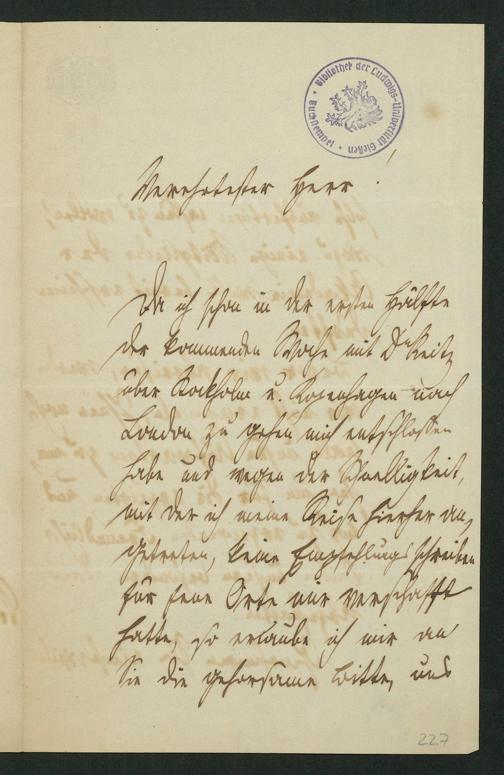 Bibliothek der Ludwigs-Universität Gießen
Verehrtester Herr!
Da ich schon in der ersten Hälfte
der kommenden Woche mit Dr Reitz
über Stockholm u. Kopenhagen nach
London zu gehen mich entschlossen
habe und wegen der Schnelligkeit,
mit der ich meine Reise hierher an,
getreten, keine Empfehlungsschreiben
für jene Orte mir verschafft
hatte, so erlaube ich mir an
Sie die gehorsame Bitte, uns
227